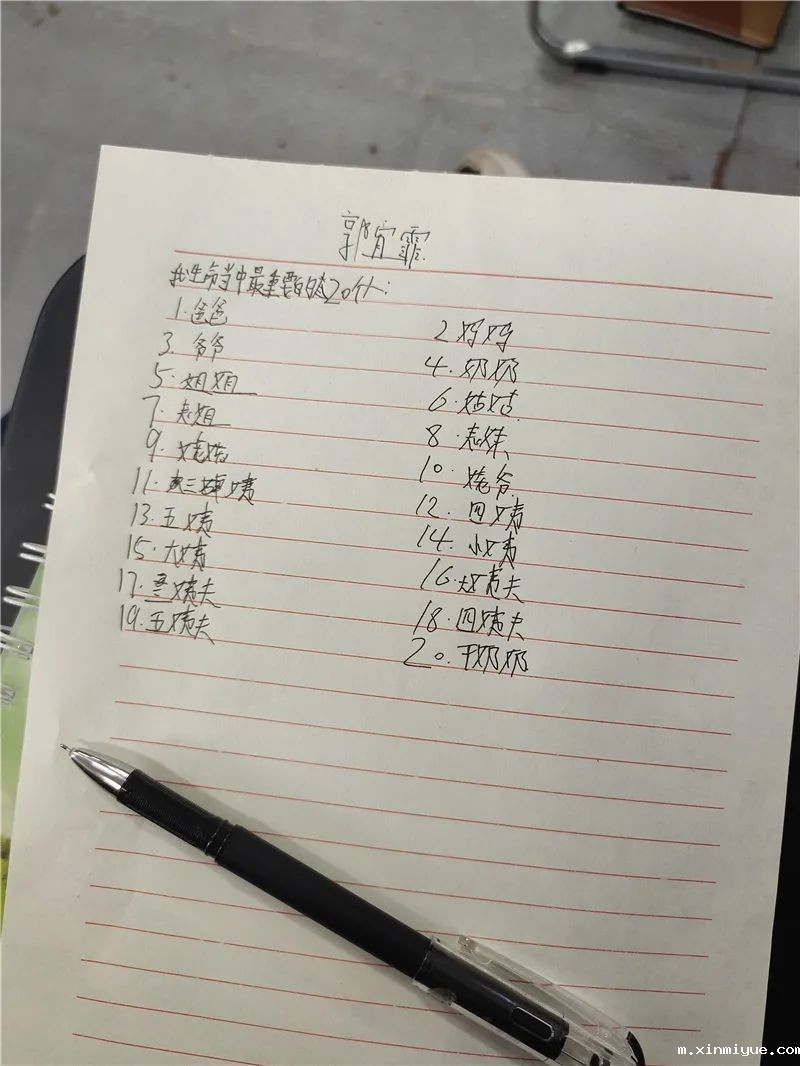 郭宜霏
我生命当中最重要的20个人:
1.爸爸 2妈妈
3.爷爷 4.奶奶
5.姐姐 6.姑姑
7.表姐 8.表妹
9.姥姥 10.姥爷
11.三姨 12.四姨
13.五姨 14.小姨
15.大姨 16.大姨夫
17.三姨夫 18.四姨夫
19.五姨夫 20.干奶奶
m.xinmiyue.com